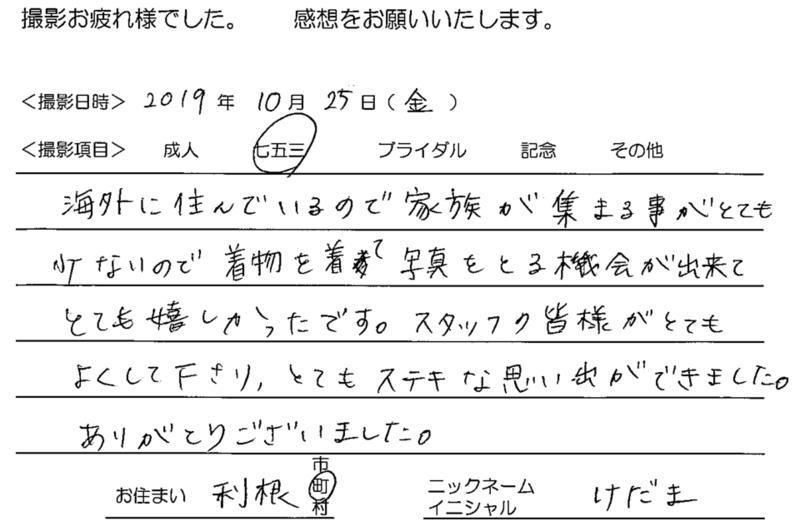 撮影お疲れ様でした。 感想をお願いいたします。
＜撮影日時＞ 2019 年 10 月 25 日（ 金 ）
＜撮影項目＞ 成人 七五三 ブライダル 記念 その他
海外に住んでいるので家族が集まる事がとても
少ないので着物を着て写真をとる機会が出来て
とても嬉しかったです。スタッフク皆様がとても
よくして下さり、とてもステキな思い出ができました。
ありがとりございました。
お住まい 利根 市町村 ニックネーム イニシャル けだま